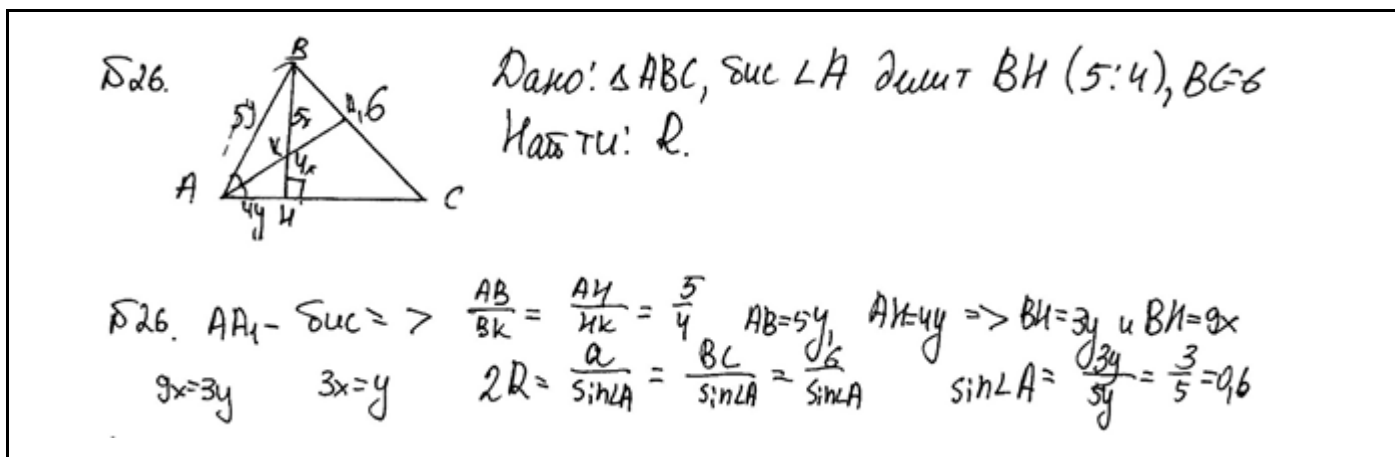 Б26.
B
5y
5x
A₁
6
K
4x
A
4y
H
C
Дано: △ABC, бис ∠A делит BH (5:4), BC=6
Найти: R.
Б26. AA₁ - бис => AB/BK = AH/HK = 5/4 AB=5y, AH=4y => BH=3y и BH=9x
9x=3y 3x=y 2R = a/sin∠A = BC/sin∠A = 6/sin∠A sin∠A = 3y/5y = 3/5 = 0,6